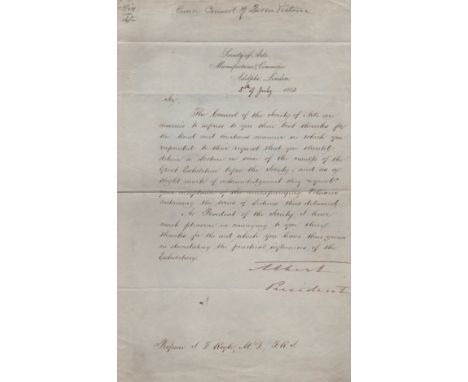 Queen Consort of Queen Victoria
Society of Arts
Manufactures & Commerce
Adelphi, London
5th of July 1852
Sir,
The Council of the Society of Arts are
anxious to express to you their best thanks for
the kind and courteous manner in which you
responded to their request that you should
deliver a Lecture on one of the results of the
Great Exhibition before the Society; and as a
slight mark of acknowledgment they request
your acceptance of the accompanying Volume
containing the series of Lectures thus delivered.
As President of the Society I have
much pleasure in conveying to you these
thanks for the aid which you have thus given
in elucidating the practical influences of the
Exhibition.
Albert
President
Professor J F Royle, M.D., F.R.S.